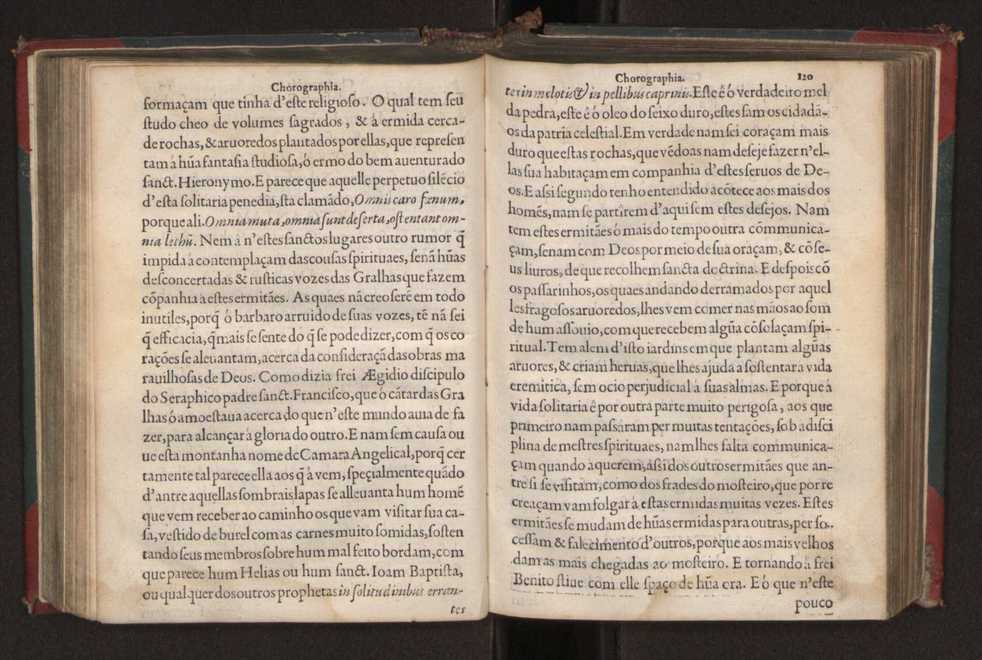 Chorographia.
formaçam que tinha d'este religioso. O qual tem seu
studo cheo de volumes sagrados, & à ermida cerca-
de rochas, & aruoredos plantados por ellas, que represen
tam à hũa fantasia studiosa, ó ermo do bem auenturado
sanct. Hieronymo. E parece que aquelle perpetuo silẽcio
d'esta solitaria penedia, sta clamãdo, Omnis caro fœnum,
porque ali. Omnia muta, omnia sunt deserta, ostentant om-
nia lethũ. Nem à n'estes sanctos lugares outro rumor q̃
impida à contemplaçam das cousas spirituaes, senã hũas
desconcertadas & rusticas vozes das Gralhas que fazem
cõpanhia à estes ermitães. As quaes nã creo serẽ em todo
inutiles, porq̃ ó barbaro arruido de suas vozes, tẽ nã sei
q̃ efficacia, q̃ mais se sente do q̃ se pode dizer, com q̃ os co
rações se aleuantam, acerca da consideraçã das obras ma
rauilhosas de Deos. Como dizia frei Ægidio discipulo
do Seraphico padre sanct. Francisco, que ó cãtar das Gra
lhas ó amoestaua acerca do que n'este mundo auia de fa
zer, para alcançar à gloria do outro. E nam sem causa ou
ue esta montanha nome de Camara Angelical, porq̃ cer
tamente tal parece ella aos q̃ à vem, speçialmente quãdo
d'antre aquellas sombrais lapas se alleuanta hum homẽ
que vem receber ao caminho os que vam visitar sua ca-
sa, vestido de burel com as carnes muito somidas, sosten
tando seus membros sobre hum mal feito bordam, com
que parece hum Helias ou hum sanct. Ioam Baptista,
ou qualquer dos outros prophetas in solitudinibus erran-
tes
Chorographia. 120
te in melotis & in pellibus caprinis. Este é ó verdadeiro mel
da pedra, este é ó oleo do seixo duro, estes sam os cidadã-
os da patria celestial. Em verdade nam sei coraçam mais
duro que estas rochas, que vẽdo as nam deseje fazer n'el-
las sua habitaçam em companhia d'estes seruos de De-
os. E assi segundo tenho entendido acõtece aos mais dos
homẽs, nam se partirem d'aqui sem estes desejos. Nam
tem estes ermitães ó mais do tempo outra cõmunica-
çam, senam com Deos por meio de sua oraçam, & cõ se-
us liuros, de que recolhem sancta doctrina. E despois cõ
os passarinhos, os quaes andando derramados por aquel
les fragosos aruoredos, lhes vem comer nas mãos ao som
de hum assouio, com que recebem algũa cõsolaçam spi-
ritual. Tem alem d'isto iardins em que plantam algũas
aruores, & criam heruas, que lhes ajuda à sostentar à vida
eremitica, sem ocio perjudicial à suas almas. E porque à
vida solitaria é por outra parte muito perigosa, aos que
primeiro nam passáram per muitas tentações, sob à disci
plina de mestres spirituaes, nam lhes falta communica-
çam quando à querem, assi dos outros ermitães que an-
tre si se visitam, como dos frades do mosteiro, que por re
creaçam vam folgar à estas ermidas muitas vezes. Estes
ermitães se mudam de hũas ermidas para outras, per so.
cessam & falecimento d'outros, porque aos mais velhos
dam as mais chegadas ao mosteiro. E tornando à frei
Benito stiue com elle spaço de hũa ora. E ó que n'este
pouco